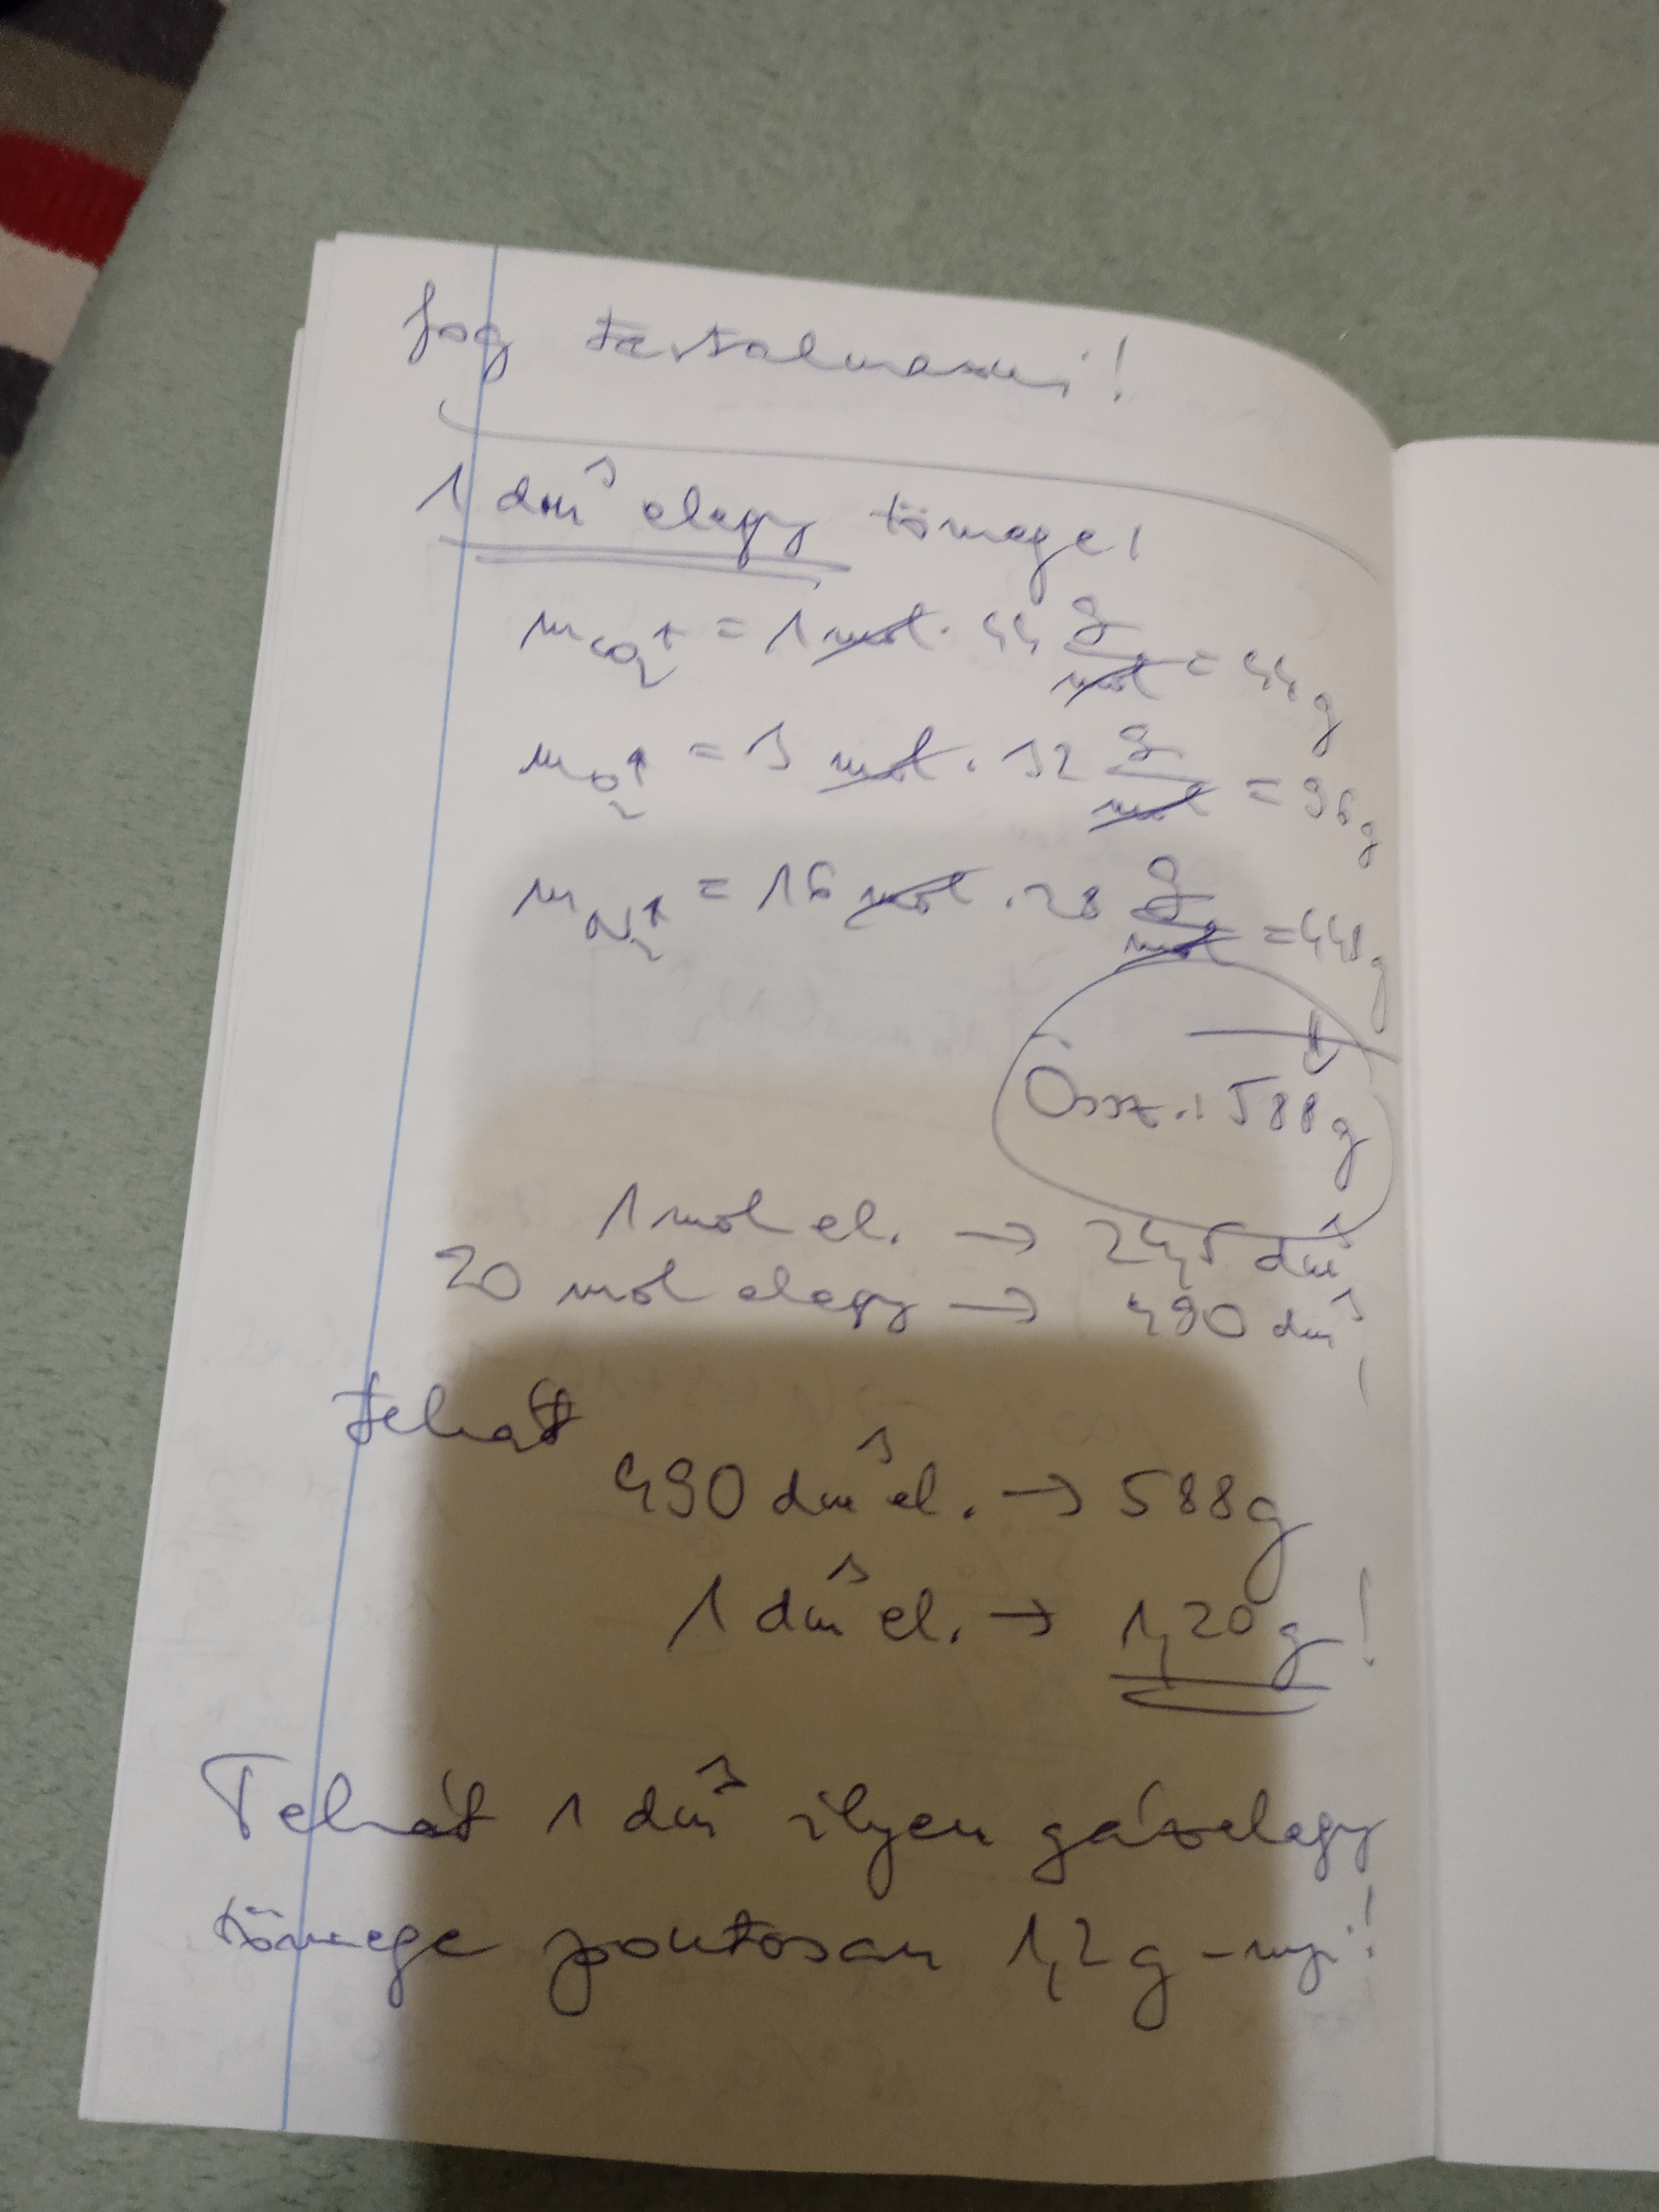 fog tartalmazni!
1 dm³ elegy tömege:
m CO₂↑ = 1 mol · 44 g/mol = 44 g
m O₂↑ = 3 mol · 32 g/mol = 96 g
m N₂↑ = 16 mol · 28 g/mol = 448 g
Össz.: 588 g
1 mol el. → 24,5 dm³
20 mol elegy → 490 dm³
tehát
490 dm³ el. → 588 g
1 dm³ el. → 1,20 g!
Tehát 1 dm³ ilyen gázelegy
tömege pontosan 1,2 g-nyi!